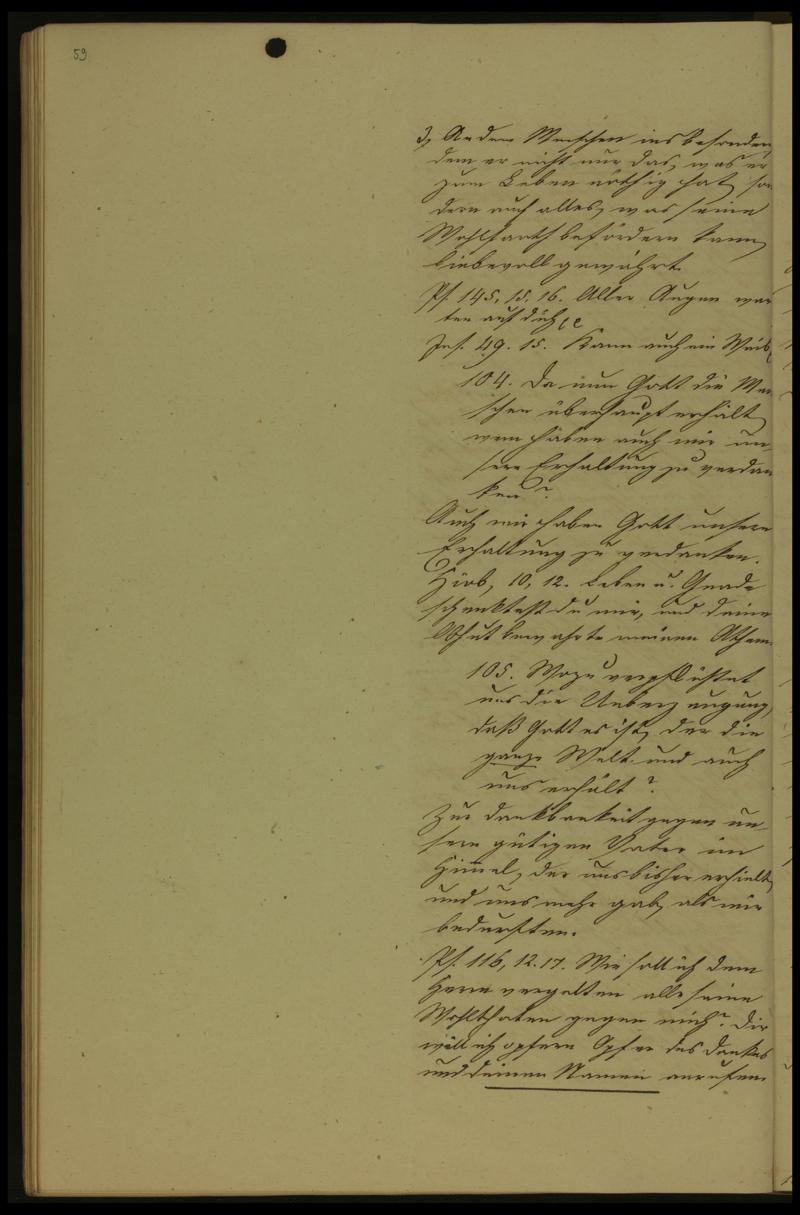 59
3, An den Menschen ins besondere
dem er nicht nur das, was er
zum Leben nöthig hat, son-
dern auch alles, was seine
Wohlfarth befördern kann,
liebevoll gewährt.
Ps. 145, 15. 16. Aller Augen war
ten auf dich
Jes. 49. 15. Kann auch ein Weib
104. Da nun Gott die Men
schen überhaupt erhält,
wem haben auch wir un-
sere Erhaltung zu verdan
ken?
Auch wir haben Gott unsere
Erhaltung zu verdanken.
Hiob, 10, 12. Leben u. Gnade
schenktest du mir, und deine
Obhut bewahrte meinen Athem.
105. Wozu verpflichtet
uns die Ueberzeugung,
daß Gott es ist, der die
ganze Welt und auch
uns erhält?
Zur Dankbarkeit gegen un-
sern gütigen Vater im
Him̄el, der uns bisher erhielt,
und uns mehr gab, als wir
bedurften.
Ps. 116, 12. 17. Wie soll ich dem
Herrn vergelten alle seine
Wohlthaten gegen mich? Dir
will ich opfern Opfer des Dankes
und deinen Namen anrufen.